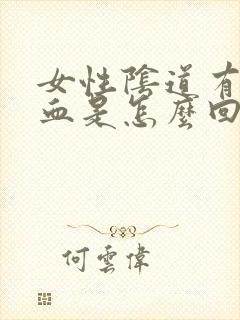 女性陰道有
血是怎麼回
何雲偉